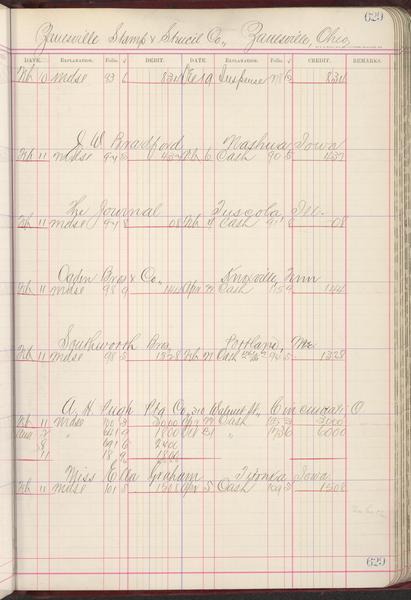 629
Zanesville Stamp & Stencil Co., Zanesville, Ohio,
DATE. EXPLANATION. FOLIO. DEBIT. DATE. EXPLANATION. FOLIO. CREDIT. REMARKS.
Feb 10 mdse 93 6 834 Dec 19 Suspense 834
J. W. Bradford Nashua Iowa
Feb 11 mdse 97 437 Feb 6 Cash 90 437
The Journal Tuscola, Ill.
Feb 11 mdse 97 8 08 Feb Cash 08
Ogden Bros & Co., Knoxville, Tenn
Feb 11 mdse 98 9 144 Apr Cash 144
Southworth Bros, Portland, Me.
Feb 11 mdse 98 5 1328 Feb Cash 1328
A. H. Pugh Ptg Co, 310 Walnut St., Cincinnati O
Feb 11 mdse 3000 Cash 3000
" " 6000
8 2400
11 18 9 1800
Miss Ella Graham, Titonka Iowa
Feb 11 mdse 101 8 1508 Apr 5 Cash 1508
629